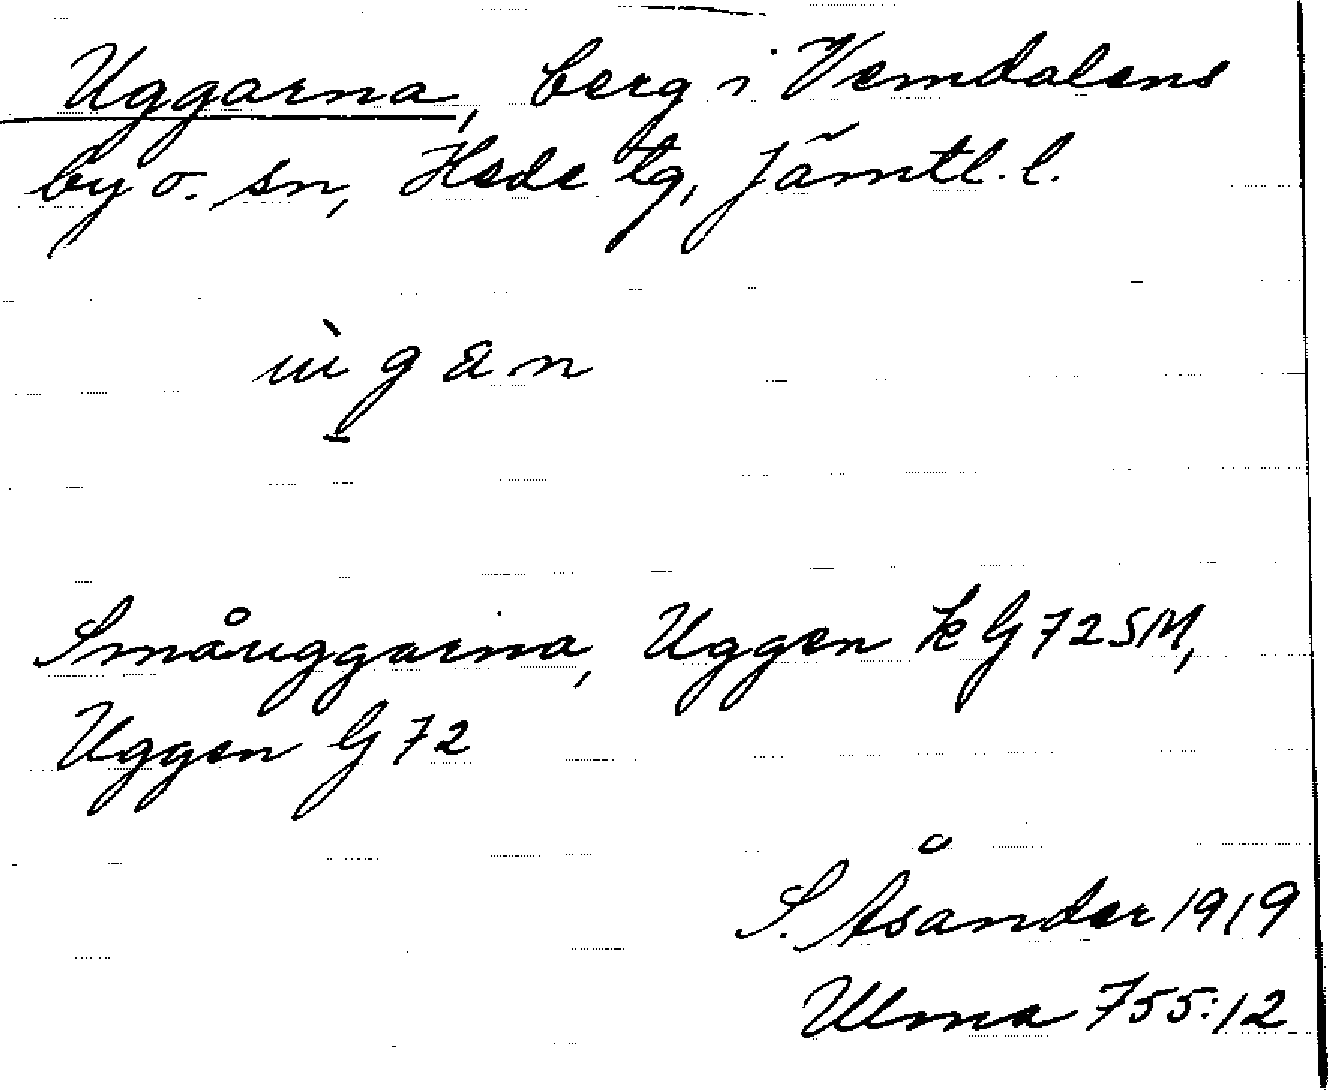 Uggarna, berg i Vemdalens
by o. sn, Hede tg, Jämtl. l.
Småuggarna, Uggen k G 72 SM,
Uggen G 72
S. Åsander 1919
Ulma 755:12